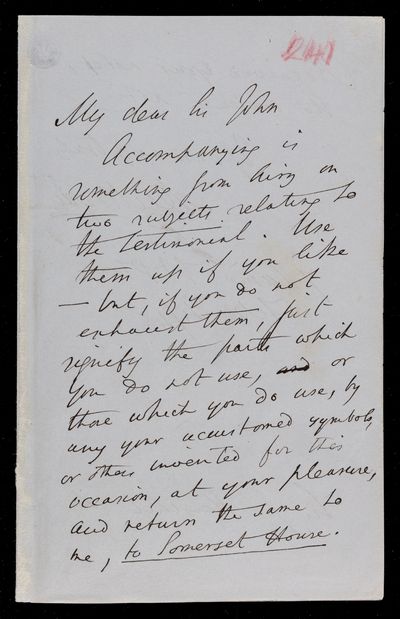 241
My dear Sir John
Accompanying is
something from Airy on
two subjects relating to
the Testimonial. Use
them up if you like
— but, if you do not
exhaust them, just
signify the parts which
you do not use, and or
those which you do use, by
any your accustomed symbols,
or others invented for this
occasion, at your pleasure,
and return the same to
me, to Somerset House.